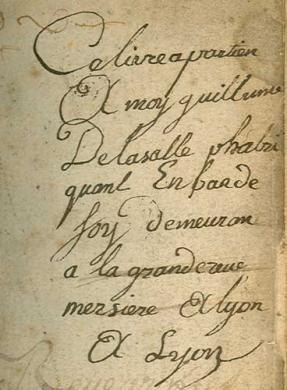 Ce livre apartien
A moy guillume
Delasalle phabri
quant En bas de
soy demeuran
a la grande rue
mersiere A lyon
A Lyon